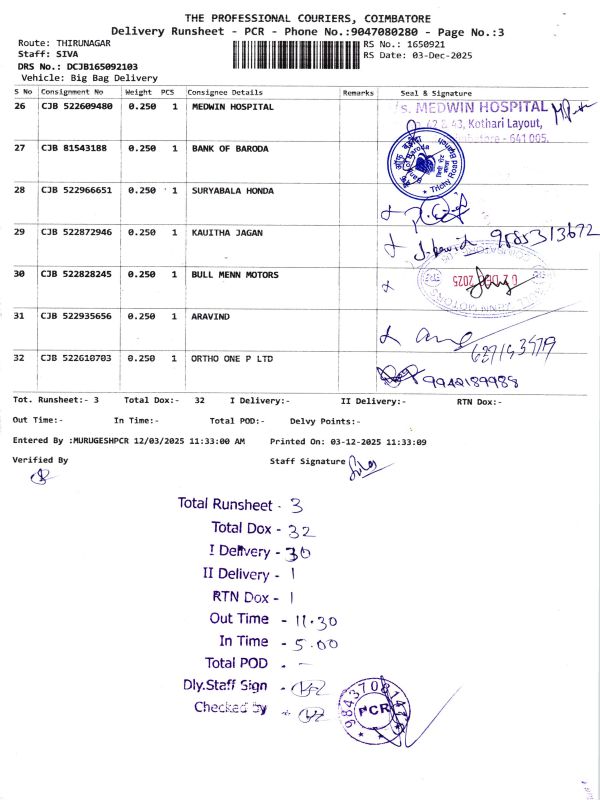 THE PROFESSIONAL COURIERS, COIMBATORE
Delivery Runsheet - PCR - Phone No.:9047080280 - Page No.:3
Route: THIRUNAGAR
Staff: SIVA
DRS No.: DCJB165092103
Vehicle: Big Bag Delivery
RS No.: 1650921
RS Date: 03-Dec-2025
S No Consignment No Weight PCS Consignee Details Remarks Seal & Signature
26 CJB 522609480 0.250 1 MEDWIN HOSPITAL
s. MEDWIN HOSPITAL
42 & 43, Kothari Layout,
- 641 005.
27 CJB 81543188 0.250 1 BANK OF BARODA
of Baroda
Trichy Road Branch
28 CJB 522966651 0.250 1 SURYABALA HONDA
29 CJB 522872946 0.250 1 KAUITHA JAGAN
9585313672
30 CJB 522828245 0.250 1 BULL MENN MOTORS
2025
31 CJB 522935656 0.250 1 ARAVIND
32 CJB 522610703 0.250 1 ORTHO ONE P LTD
9940189988
Tot. Runsheet:- 3 Total Dox:- 32 I Delivery:- II Delivery:- RTN Dox:-
Out Time:- In Time:- Total POD:- Delvy Points:-
Entered By :MURUGESHPCR 12/03/2025 11:33:00 AM Printed On: 03-12-2025 11:33:09
Verified By Staff Signature
Total Runsheet - 3
Total Dox - 32
I Delivery - 30
II Delivery - 1
RTN Dox - 1
Out Time - 11.30
In Time - 5.00
Total POD - -
Dly.Staff Sign -
Checked By -
PCR